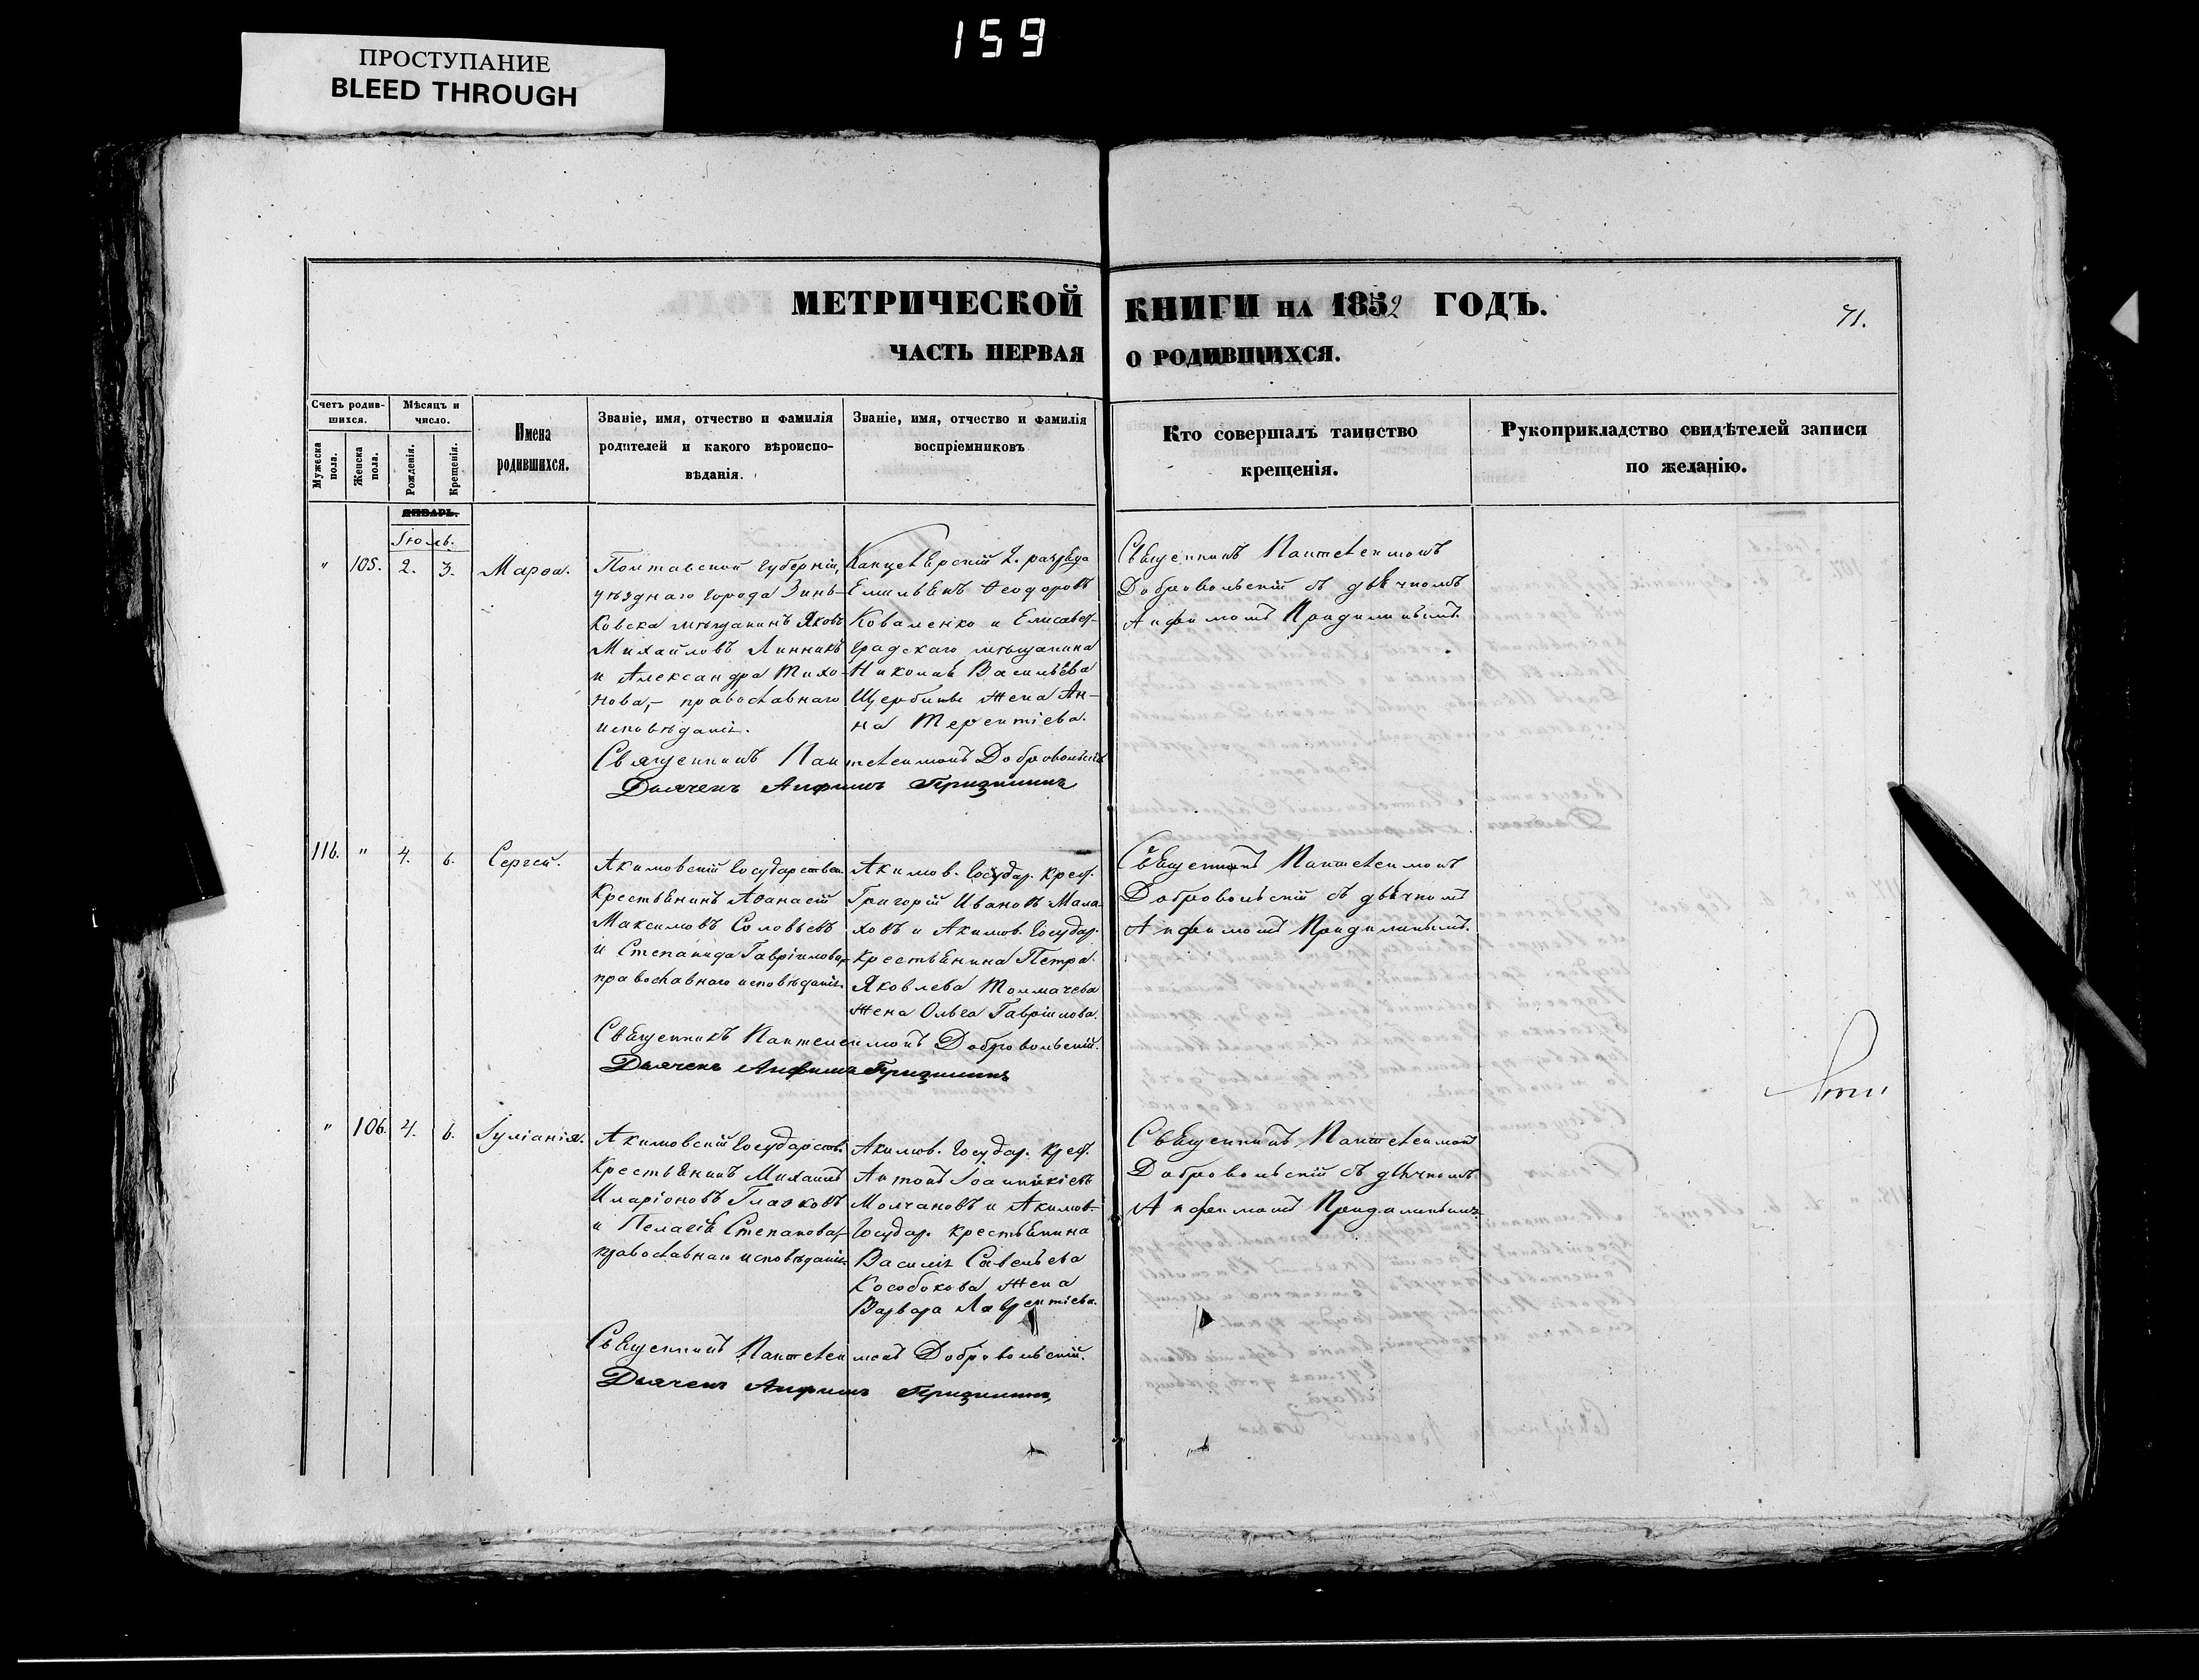 159
ПРОСТУПАНИЕ
BLEED THROUGH
МЕТРИЧЕСКОЙ КНИГИ НА 1852 ГОДЪ.
71.
ЧАСТЬ ПЕРВАЯ О РОДИВШИХСЯ.
Счетъ родив-
шихся.
Мужеска
пола.
Женска
пола.
Мѣсяцъ и
число.
Рожденія.
Крещенія.
Имена
родившихся.
Званіе, имя, отчество и фамилія
родителей и какого вѣроиспо-
вѣданія.
Званіе, имя, отчество и фамилія
воспріемниковъ
Кто совершалъ таинство
крещенія.
Рукоприкладство свидѣтелей записи
по желанію.
ЯНВАРЬ.
Іюль.
" 105. 2. 3. Марѳа.
Полтавской Губерніи,
уѣзднаго города Зинь-
ковска мѣщанинъ Яковъ
Михайловъ Линникъ
и Александра Тихо-
нова,- православнаго
исповѣданія.
Канцелярскій 2. разряда
Емильянъ Ѳеодоровъ
Коваленко и Елисавет-
градскаго мѣщанина
Николая Васильева
Щербины жена Ан-
на Терентіева.
Священникъ Пантелеимонъ
Добровольскій съ дьячкомъ
Анфимомъ
Священникъ Пантелеимонъ Добровольскій
Дьячекъ Анфимъ
116. " 4. 6. Сергей.
Акимовскій Государствен.
Крестьянинъ Аѳанасій
Максимовъ Соловьевъ
и Степанида Гавріилова,-
православнаго исповѣданія.
Акимов. Государ. Крест.
Григорій Ивановъ Мала-
ховъ и Акимов. Государ.
крестьянина Петра
Яковлева Толмачева
жена Ольга Гавріилова.
Священникъ Пантелеимонъ
Добровольскій съ дьячкомъ
Анфимомъ
Священникъ Пантелеимонъ Добровольскій.
Дьячекъ Анфимъ
" 106. 4. 6. Іуліанія.
Акимовскій Государств.
крестьянинъ Михаилъ
Иларіоновъ Глазковъ
и Пелагія Степанова,-
православнаго исповѣданія.
Акимов. Государ. крест.
Антонъ Іоанникіевъ
Молчановъ и Акимов-
Государ. крестьянина
Василія Савельева
Кособокова жена
Варвара Лаврентіева.
Священникъ Пантелеимонъ
Добровольскій съ дьячкомъ
Анфимомъ
Священникъ Пантелеимонъ Добровольскій.
Дьячекъ Анфимъ